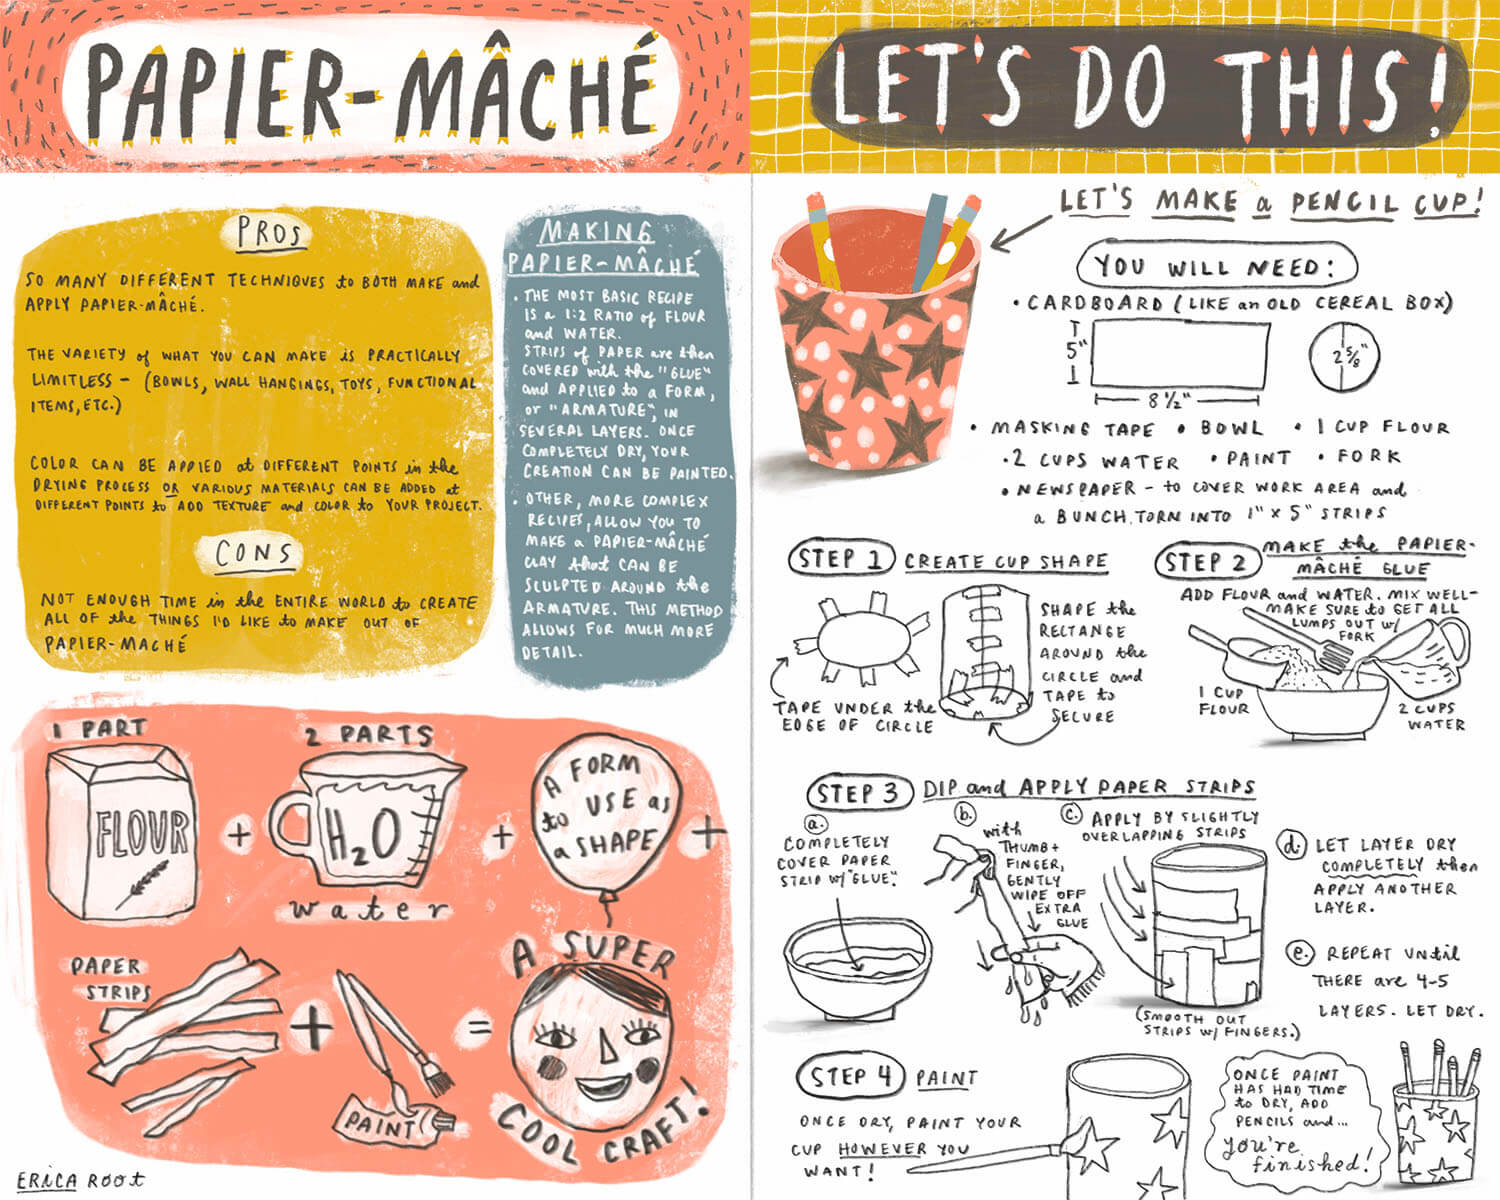 PAPIER-MÂCHÉ
PROS
SO MANY DIFFERENT TECHNIQUES to BOTH MAKE and
APPLY PAPIER-MÂCHÉ.
THE VARIETY of WHAT YOU CAN MAKE is PRACTICALLY
LIMITLESS – (BOWLS, WALL HANGINGS, TOYS, FUNCTIONAL
ITEMS, ETC.)
COLOR CAN BE APPIED at DIFFERENT POINTS in the
DRYING PROCESS OR VARIOUS MATERIALS CAN BE ADDED at
DIFFERENT POINTS to ADD TEXTURE and COLOR to YOUR PROJECT.
CONS
NOT ENOUGH TIME in the ENTIRE WORLD to CREATE
ALL OF the THINGS I'D LIKE to MAKE OUT OF
PAPIER-MACHÉ
MAKING
PAPIER-MÂCHÉ
• THE MOST BASIC RECIPE
IS a 1:2 RATIO of FLOUR
and WATER.
STRIPS of PAPER are then
COVERED with the "GLUE"
and APPLIED to a FORM,
or "ARMATURE", IN
SEVERAL LAYERS. ONCE
COMPLETELY DRY, YOUR
CREATION CAN BE PAINTED.
• OTHER, MORE COMPLEX
RECIPES, ALLOW YOU TO
MAKE a PAPIER-MÂCHÉ
CLAY that CAN BE
SCULPTED AROUND the
ARMATURE. THIS METHOD
ALLOWS FOR MUCH MORE
DETAIL.
1 PART
FLOUR
+
2 PARTS
H2O
water
+
A FORM
to USE as
a SHAPE
+
PAPER
STRIPS
+
PAINT
=
A SUPER
COOL CRAFT!
ERICA ROOT
LET'S DO THIS!
LET'S MAKE a PENCIL CUP!
YOU WILL NEED:
• CARDBOARD (LIKE an OLD CEREAL BOX)
5"
8 1/2"
2 5/8"
• MASKING TAPE • BOWL • 1 CUP FLOUR
• 2 CUPS WATER • PAINT • FORK
• NEWSPAPER – to COVER WORK AREA and
a BUNCH, TORN INTO 1" x 5" STRIPS
STEP 1 CREATE CUP SHAPE
TAPE UNDER the
EDGE OF CIRCLE
SHAPE the
RECTANGE
AROUND the
CIRCLE and
TAPE to
SECURE
STEP 2 MAKE the PAPIER-
MÂCHÉ GLUE
ADD FLOUR and WATER. MIX WELL–
MAKE SURE to GET ALL
LUMPS OUT w/
FORK
1 CUP
FLOUR
2 CUPS
WATER
STEP 3 DIP and APPLY PAPER STRIPS
a.
COMPLETELY
COVER PAPER
STRIP w/ "GLUE".
b.
with
THUMB +
FINGER,
GENTLY
WIPE OFF
EXTRA
GLUE
c. APPLY BY SLIGHTLY
OVERLAPPING STRIPS
(SMOOTH OUT
STRIPS w/ FINGERS.)
d. LET LAYER DRY
COMPLETELY then
APPLY ANOTHER
LAYER.
e. REPEAT UNtil
THERE are 4-5
LAYERS. LET DRY.
STEP 4 PAINT
ONCE DRY, PAINT YOUR
CUP HOWEVER YOU
WANT!
ONCE PAINT
HAS HAD TIME
to DRY, ADD
PENCILS and...
you're
finished!